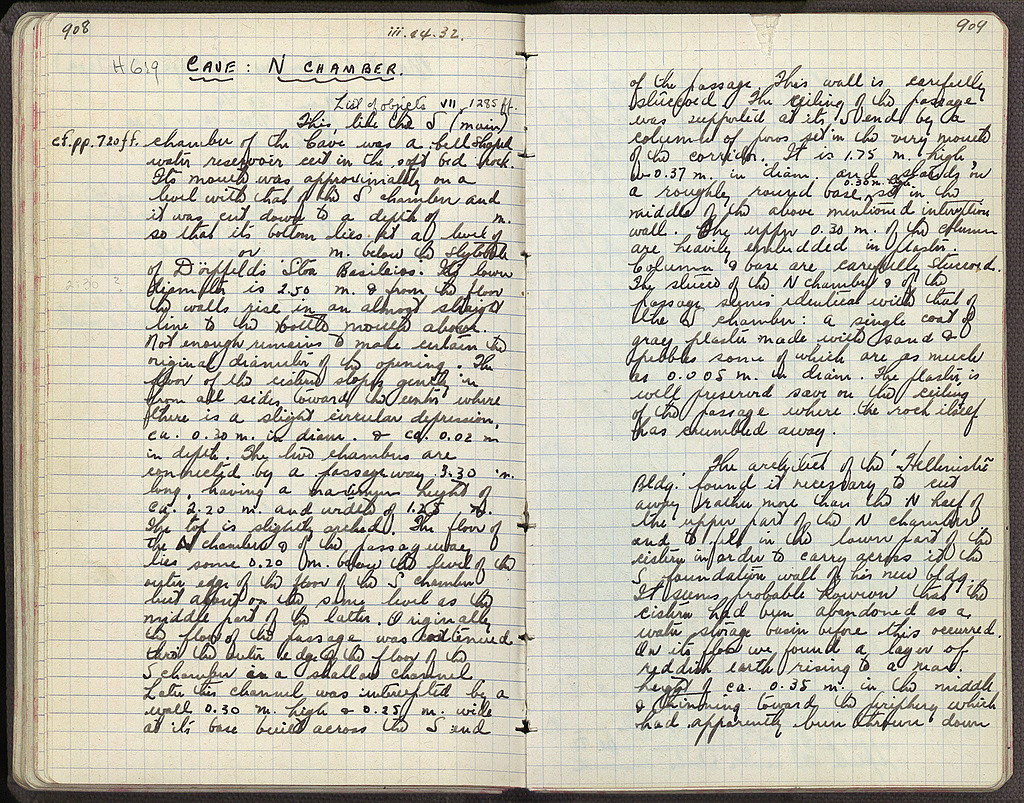 908
iii.24.32.
H 619
CAVE : N CHAMBER.
List of objects VII, 1285 ff.
This, like the S (main)
cf. pp. 720 ff. chamber of the Cave was a bell shaped
water reservoir cut in the soft bed rock.
Its mouth was approximately on a
level with that of the S chamber and
it was cut down to a depth of m.
so that its bottom lies at a level of
or m. below the stylobate
of Dörpfeld's Stoa Basileios. Its lower
2.50 ?
diameter is 2.50 m. & from the floor
the walls rise in an almost straight
line to the bottle mouth above.
Not enough remains to make certain the
original diameter of the opening. The
floor of the cistern slopes gently in
from all sides toward the center where
there is a slight circular depression,
ca. 0.20 m. in diam. & ca. 0.02 m
in depth. The two chambers are
connected by a passageway 3.30 m.
long, having a maximum height of
ca. 2.20 m. and width of m.
The top is slightly arched. The floor of
the N chamber & of the passageway
lies some 0.20 m. below the level of the
outer edge of the floor of the S chamber
but about on the same level as the
middle part of the latter. Originally
the floor of the passage was continued
thru the outer edge of the floor of the
S chamber as a shallow channel.
Later this channel was interrupted by a
wall 0.30 m. high & 0.25 m. wide
at its base built across the S end
909
of the passage. This wall is carefully
stuccoed. The ceiling of the passage
was supported at its S end by a
column of poros set in the very mouth
of the corridor. It is 1.75 m. high,
0.37 m. in diam. and stands on
a roughly round base, 0.35 m. high, set in the
middle of the above mentioned
wall. The upper 0.30 m. of the column
are heavily embedded in plaster.
Column & base are carefully stuccoed.
The stucco of the N chamber & of the
passage seems identical with that of
the S chamber: a single coat of
gray plaster made with sand &
pebbles some of which are as much
as 0.005 m. in diam. The plaster is
well preserved save on the ceiling
of the passage where the rock itself
has crumbled away.
The architect of the 'Hellenistic
Bldg.' found it necessary to cut
away rather more than the N half of
the upper part of the N chamber
and to fill in the lower part of the
cistern in order to carry across it the
S foundation wall of his new bldg.
It seems probable however that the
cistern had been abandoned as a
water storage basin before this occurred.
On its floor we found a layer of
reddish earth rising to a max.
height of ca. 0.35 m. in the middle
& thinning towards the periphery which
had apparently been thrown down